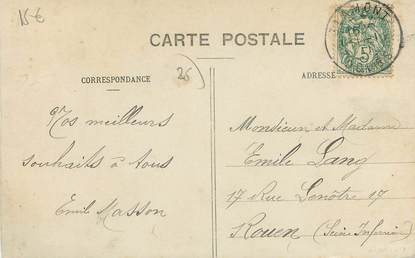 15 €
CARTE POSTALE
CORRESPONDANCE
26
ADRESSE
5
Nos meilleurs
souhaits à tous
Emil Masson
Monsieur et Madame
Emile Lang
17 Rue Lenôtre 17
Rouen (Seine Inferieure)